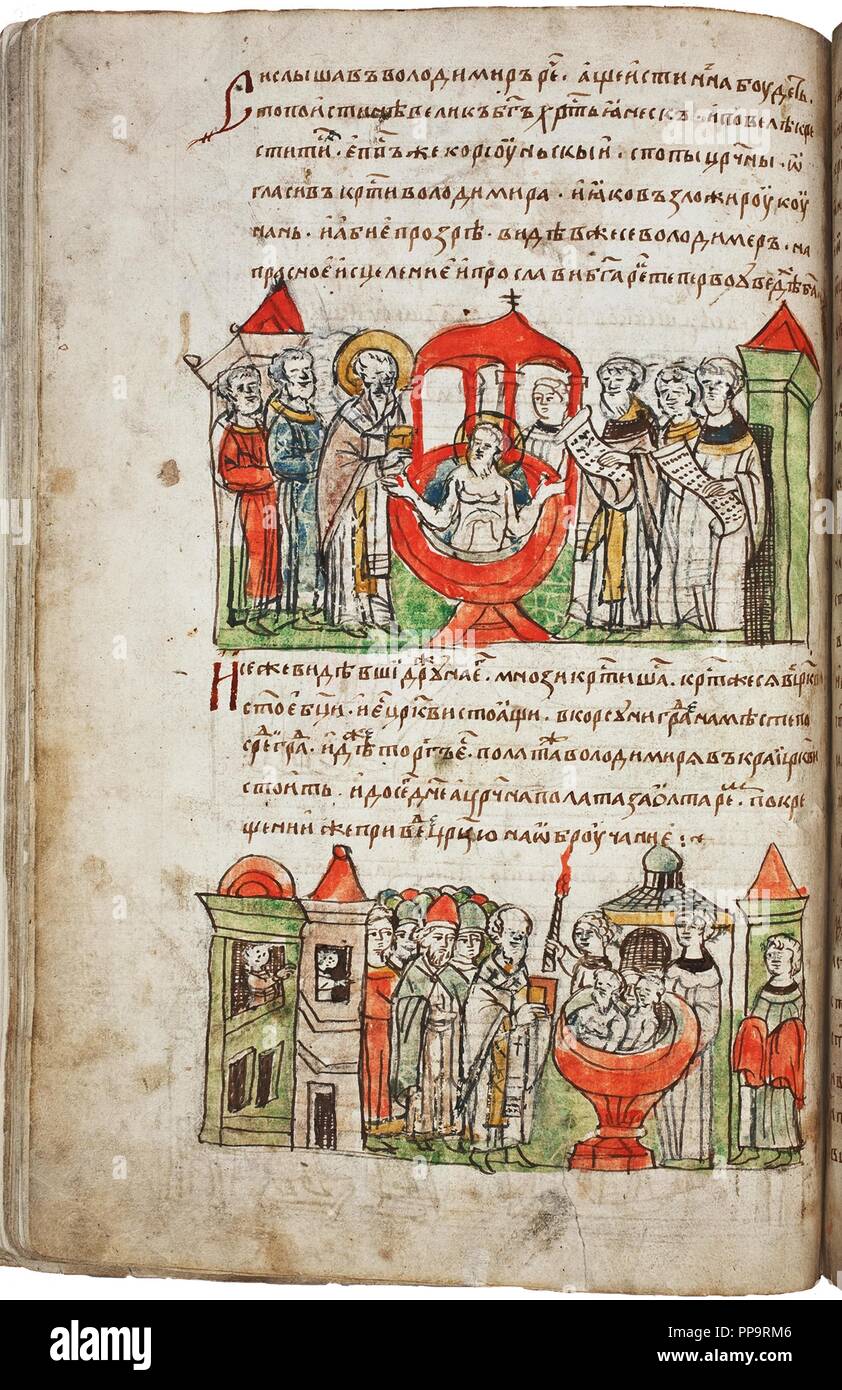 Си слышавъ володимиръ ре҃ . а щеистин҃на боудеть .
то поистиннѣ великъ бг҃ъ хр҃тьꙗнескъ . и повелѣ кре
стити . еп҃пъ же корсоуньскыи . с попы цр҃чны . ѡ
гласивъ кр҃ти володимира . и ꙗковъзложи роукоу
нань . и абие прозрѣ . видѣв же се володимеръ . на
прасное исцеление и прослави бг҃а ре҃ те первоувед҃ѣ б҃а
И се же видѣвши дружина е҃г . мнози кр҃тишаⷭ . кр҃т же ся въ цр҃кви
ст҃ое бц҃и . и е҃ цр҃кви стоꙗщи . в корсуни гра҃д на мѣсте по
сре҃д гра҃д . иде҃же торгъ е҃ . полата҃ж володимиря въ краи цр҃кви
стоить . и до сег҃о дн҃е а цр҃чна полата за ѡлтаре҃м . по кре
щении же приве҃де цр҃цю на ѡброучание :
alamy
a
alamy stock photo
PP9RM6
www.alamy.com